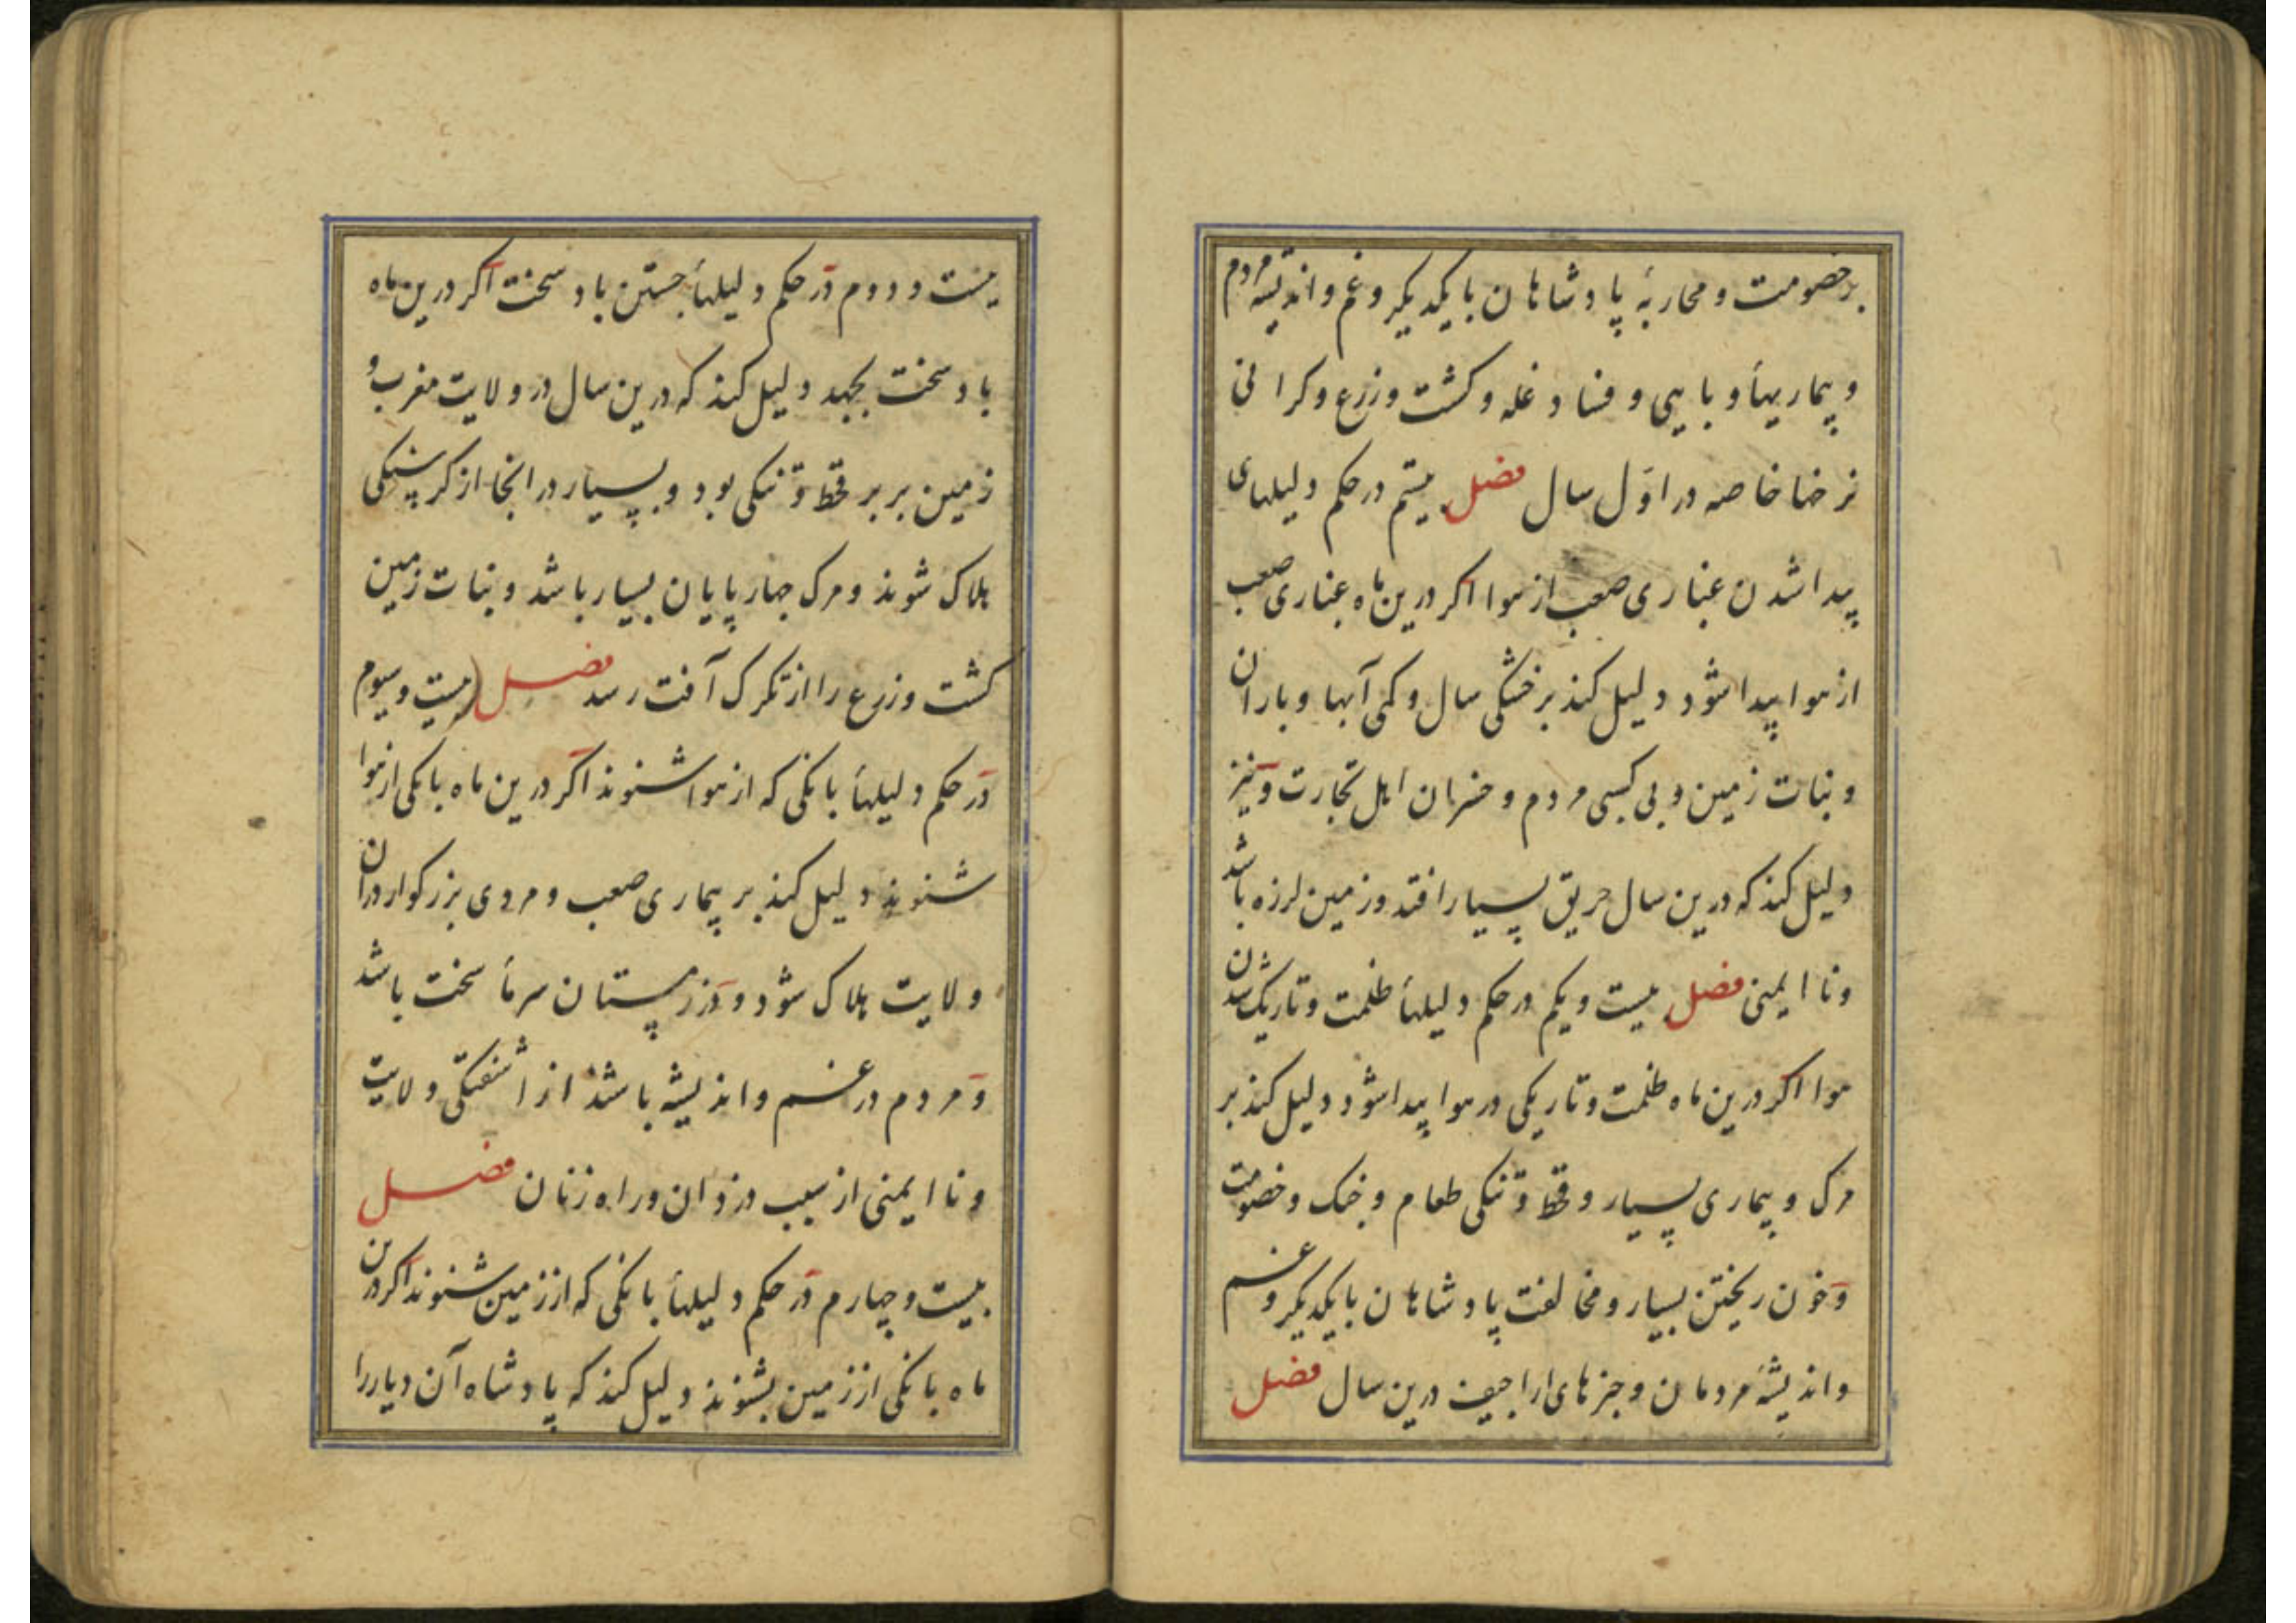 بر خصومت و محاربهٔ پادشاهان بایکدیکر و غم و اندیشه مردم
و بیماریها و بایی و فساد غله و کشت و زرع و کرانی
نرخها خاصه در اوّل سال فصل بیستم در حکم دلیلهای
پیدا شدن غباری صعب از هوا اکر درین ماه غباری صعب
از هوا پیدا شود دلیل کند بر خشکی سال و کمی آبها و باران
و نبات زمین و بی کسبی مردم و خسران اهل تجارت و نیز
دلیل کند که درین سال حریق بسیار افتد و زمین لرزه باشد
و نا ایمنی فصل بیست و یکم در حکم دلیلهأ ظلمت و تاریک شدن
هوا اکر درین ماه ظلمت و تاریکی در هوا پیدا شود دلیل کند بر
مرک و بیماری بسیار و قحط و تنکی طعام و جنک و خصومت
و خون ریختن بسیار و مخالفت پادشاهان بایکدیکر و غم
و اندیشهٔ مردمان و خبرهای اراجیف درین سال فصل
بیست و دوم در حکم دلیلهأ جستن باد سخت اکر درین ماه
باد سخت بجهد دلیل کند که درین سال در ولایت مغرب و
زمین بربر قحط و تنکی بود و بسیار در انجا از کرسنکی
هلاک شوند و مرک چهارپایان بسیار باشد و نبات زمین
کشت و زرع را از تکرک آفت رسد فصل بیست و سیوم
در حکم دلیلهأ بانکی که از هوا شنوند اکر درین ماه بانکی از هوا
شنوند دلیل کند بر بیماری صعب و مردی بزرکوار در ان
ولایت هلاک شود و در زمستان سرمأ سخت باشد
و مردم در غم و اندیشه باشند از اشفتکی ولایت
و نا ایمنی از سبب دزدان و راه زنان فصل
بیست و چهارم در حکم دلیلهأ بانکی که از زمین شنوند اکر درین
ماه بانکی از زمین بشنوند دلیل کند که پادشاه آن دیار را